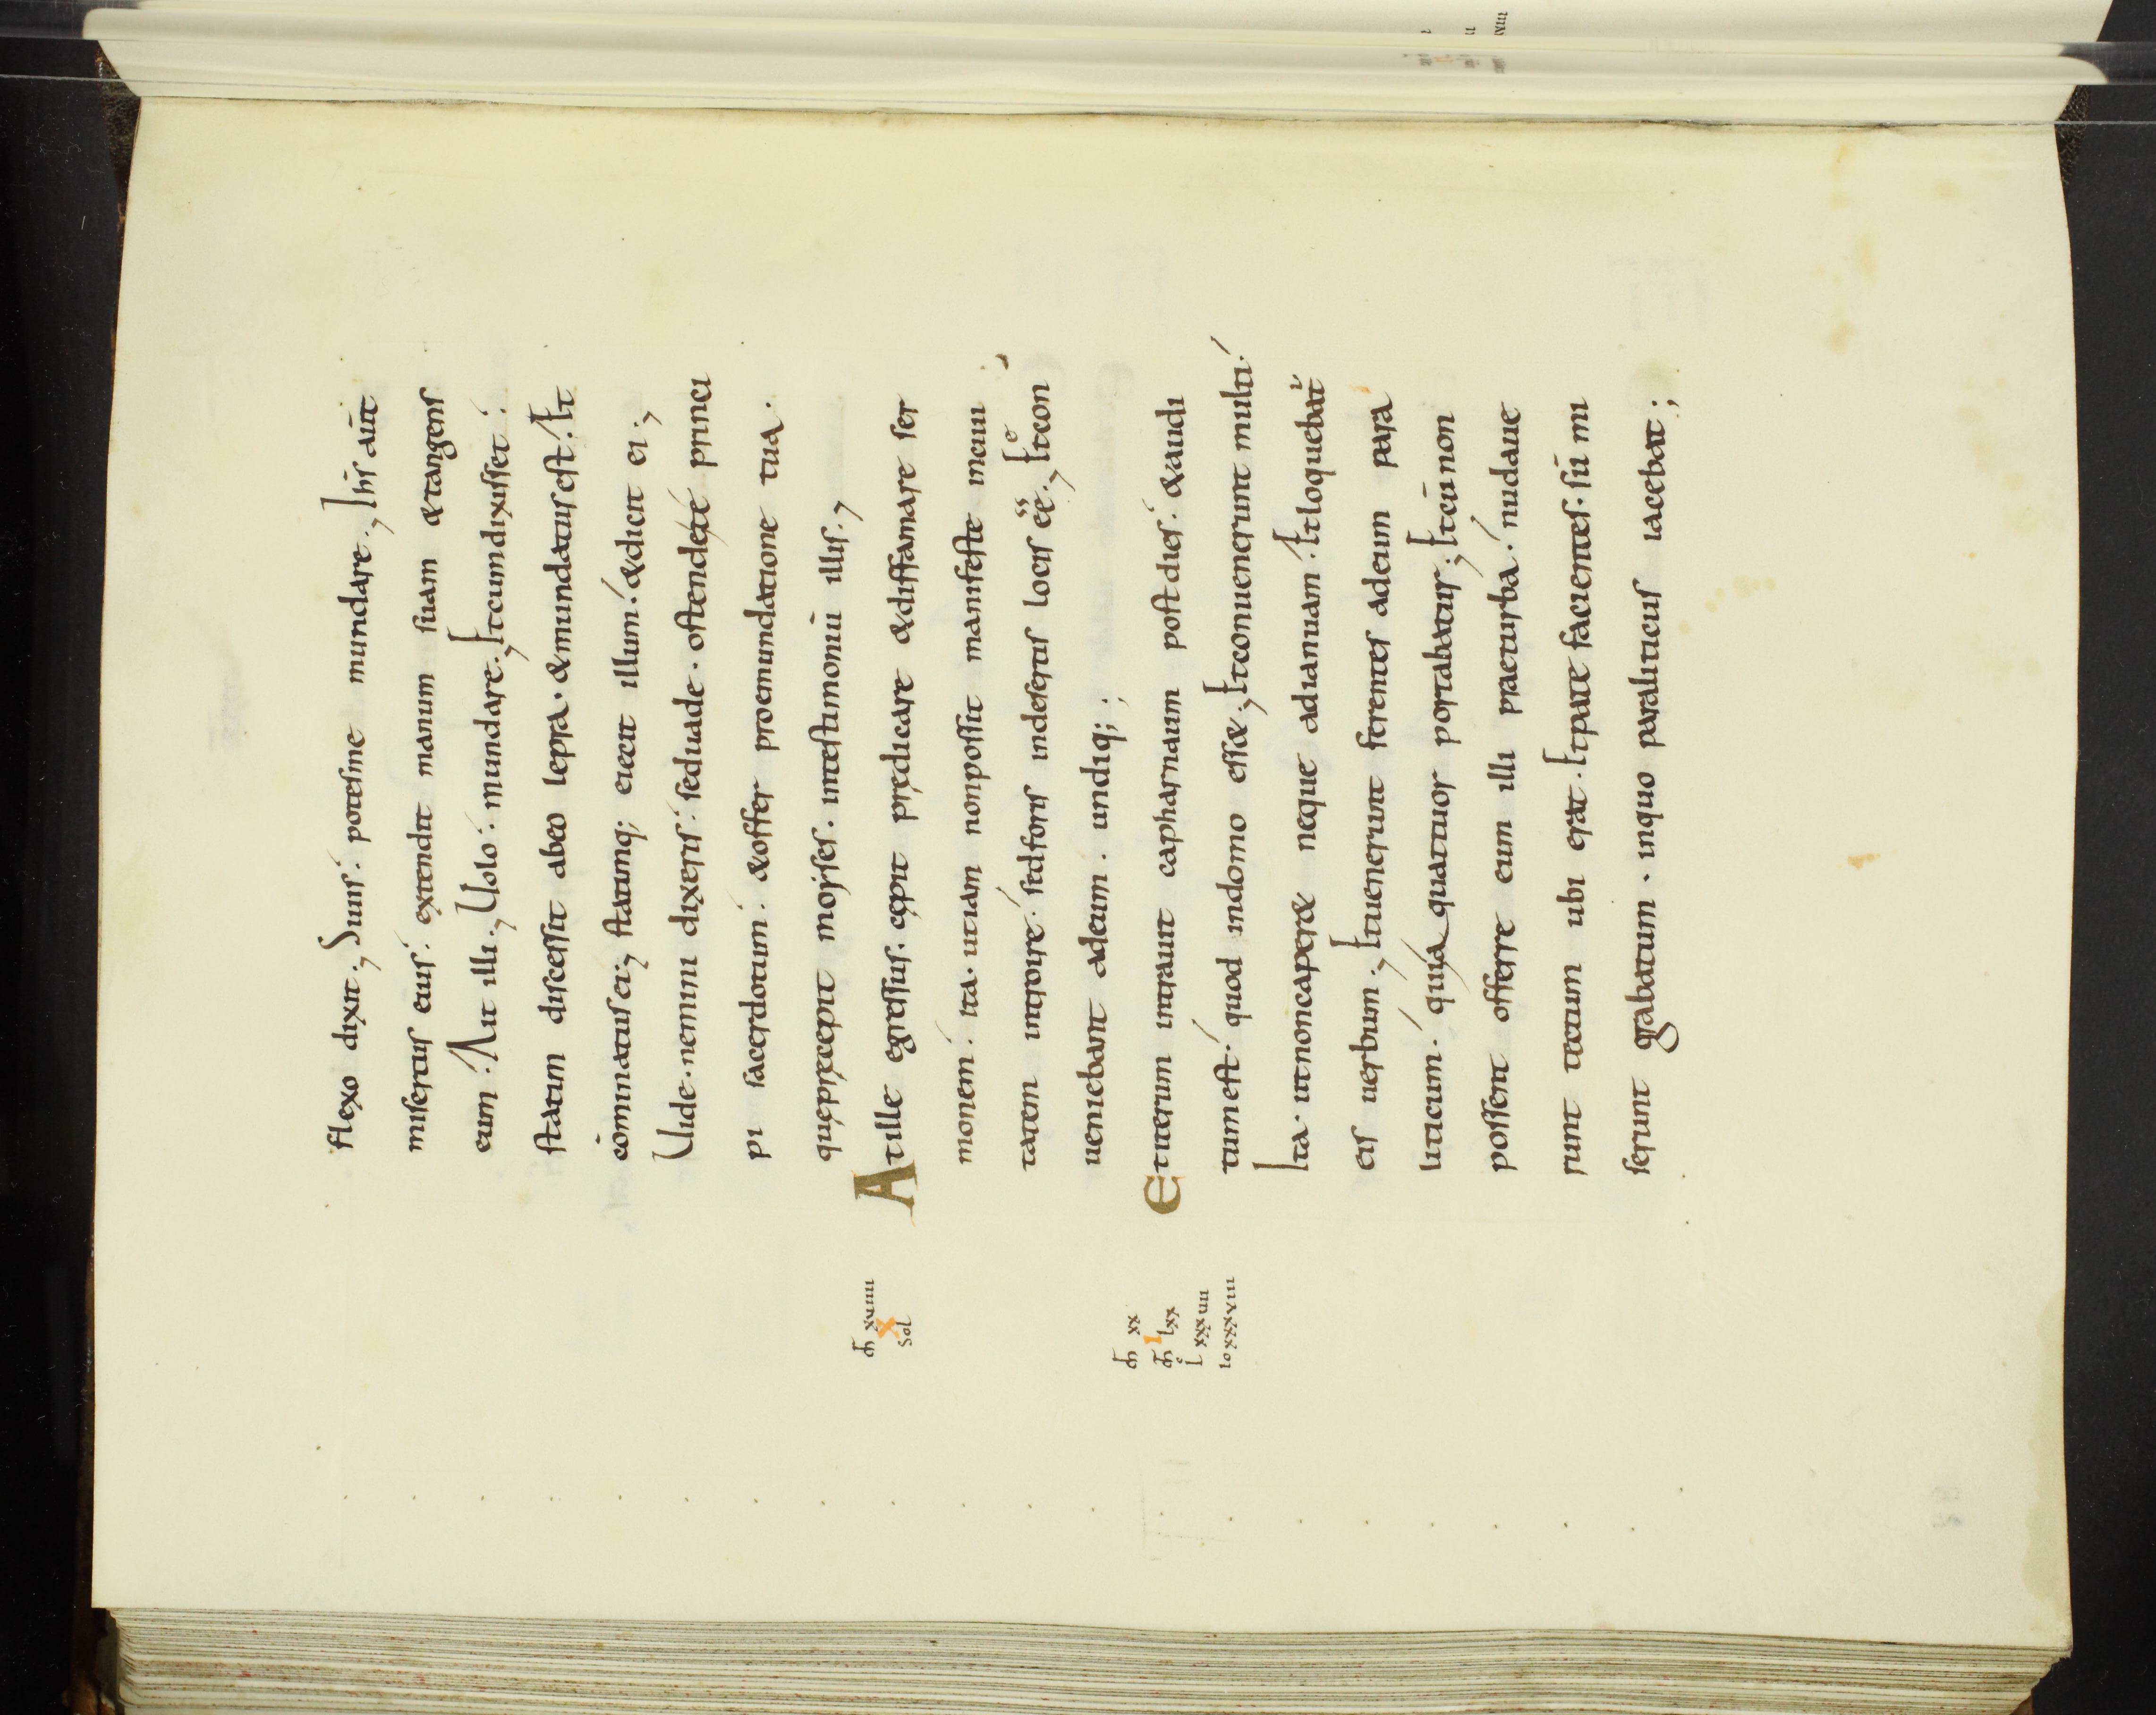 flexo dixit., Siuis⸵ potesme mundare., Ihs̄ aut̄
misertus eius⸵ extendit manum suam &tangens
eum⸵ Ait illi., Uolo⸵ mundare., Etcumdixisset⸵
statim discessit abeo lepra· &mundatusest. Et
cōminatus ei;, statimq; eiecit illum⸵ &dicit ei.,
Uide·nemini dixeris⸵ seduade· ostendete princi
pi sacerdotum⸵ &offer proemundatione tua.
quępręcepit moyses. intestimoniū illis.,
Atille egressus· cępit prędicare &diffamare ser
monem⸵ ita·utiam nonpossit manifeste inciui
tatem introire⸵ sedforis indesertis locis eē., Etcon
ueniebant adeum. undiq;;
Etiterum intrauit capharnaum postdies⸵ &audi
tumest⸵ quod indomo ess&., Etconuenerunt multi⸵
Ita·utnoncaper& neque adianuam⸵ Etloquebat̄
eis uerbum., Etuenerunt ferentes adeum para
liticum⸵ quia quattuor portabatur;, Etcū non
possent offerre eum illi praeturba⸵ nudaue
runt tectum ubi erat. Etpate facientes⸵ sūmi
serunt grabatum · inquo paraliticus iacebat;
m̄ xviiii
X
sol
m̄ xx
I
m̄ lxx
l xxxvii
io xxxviii